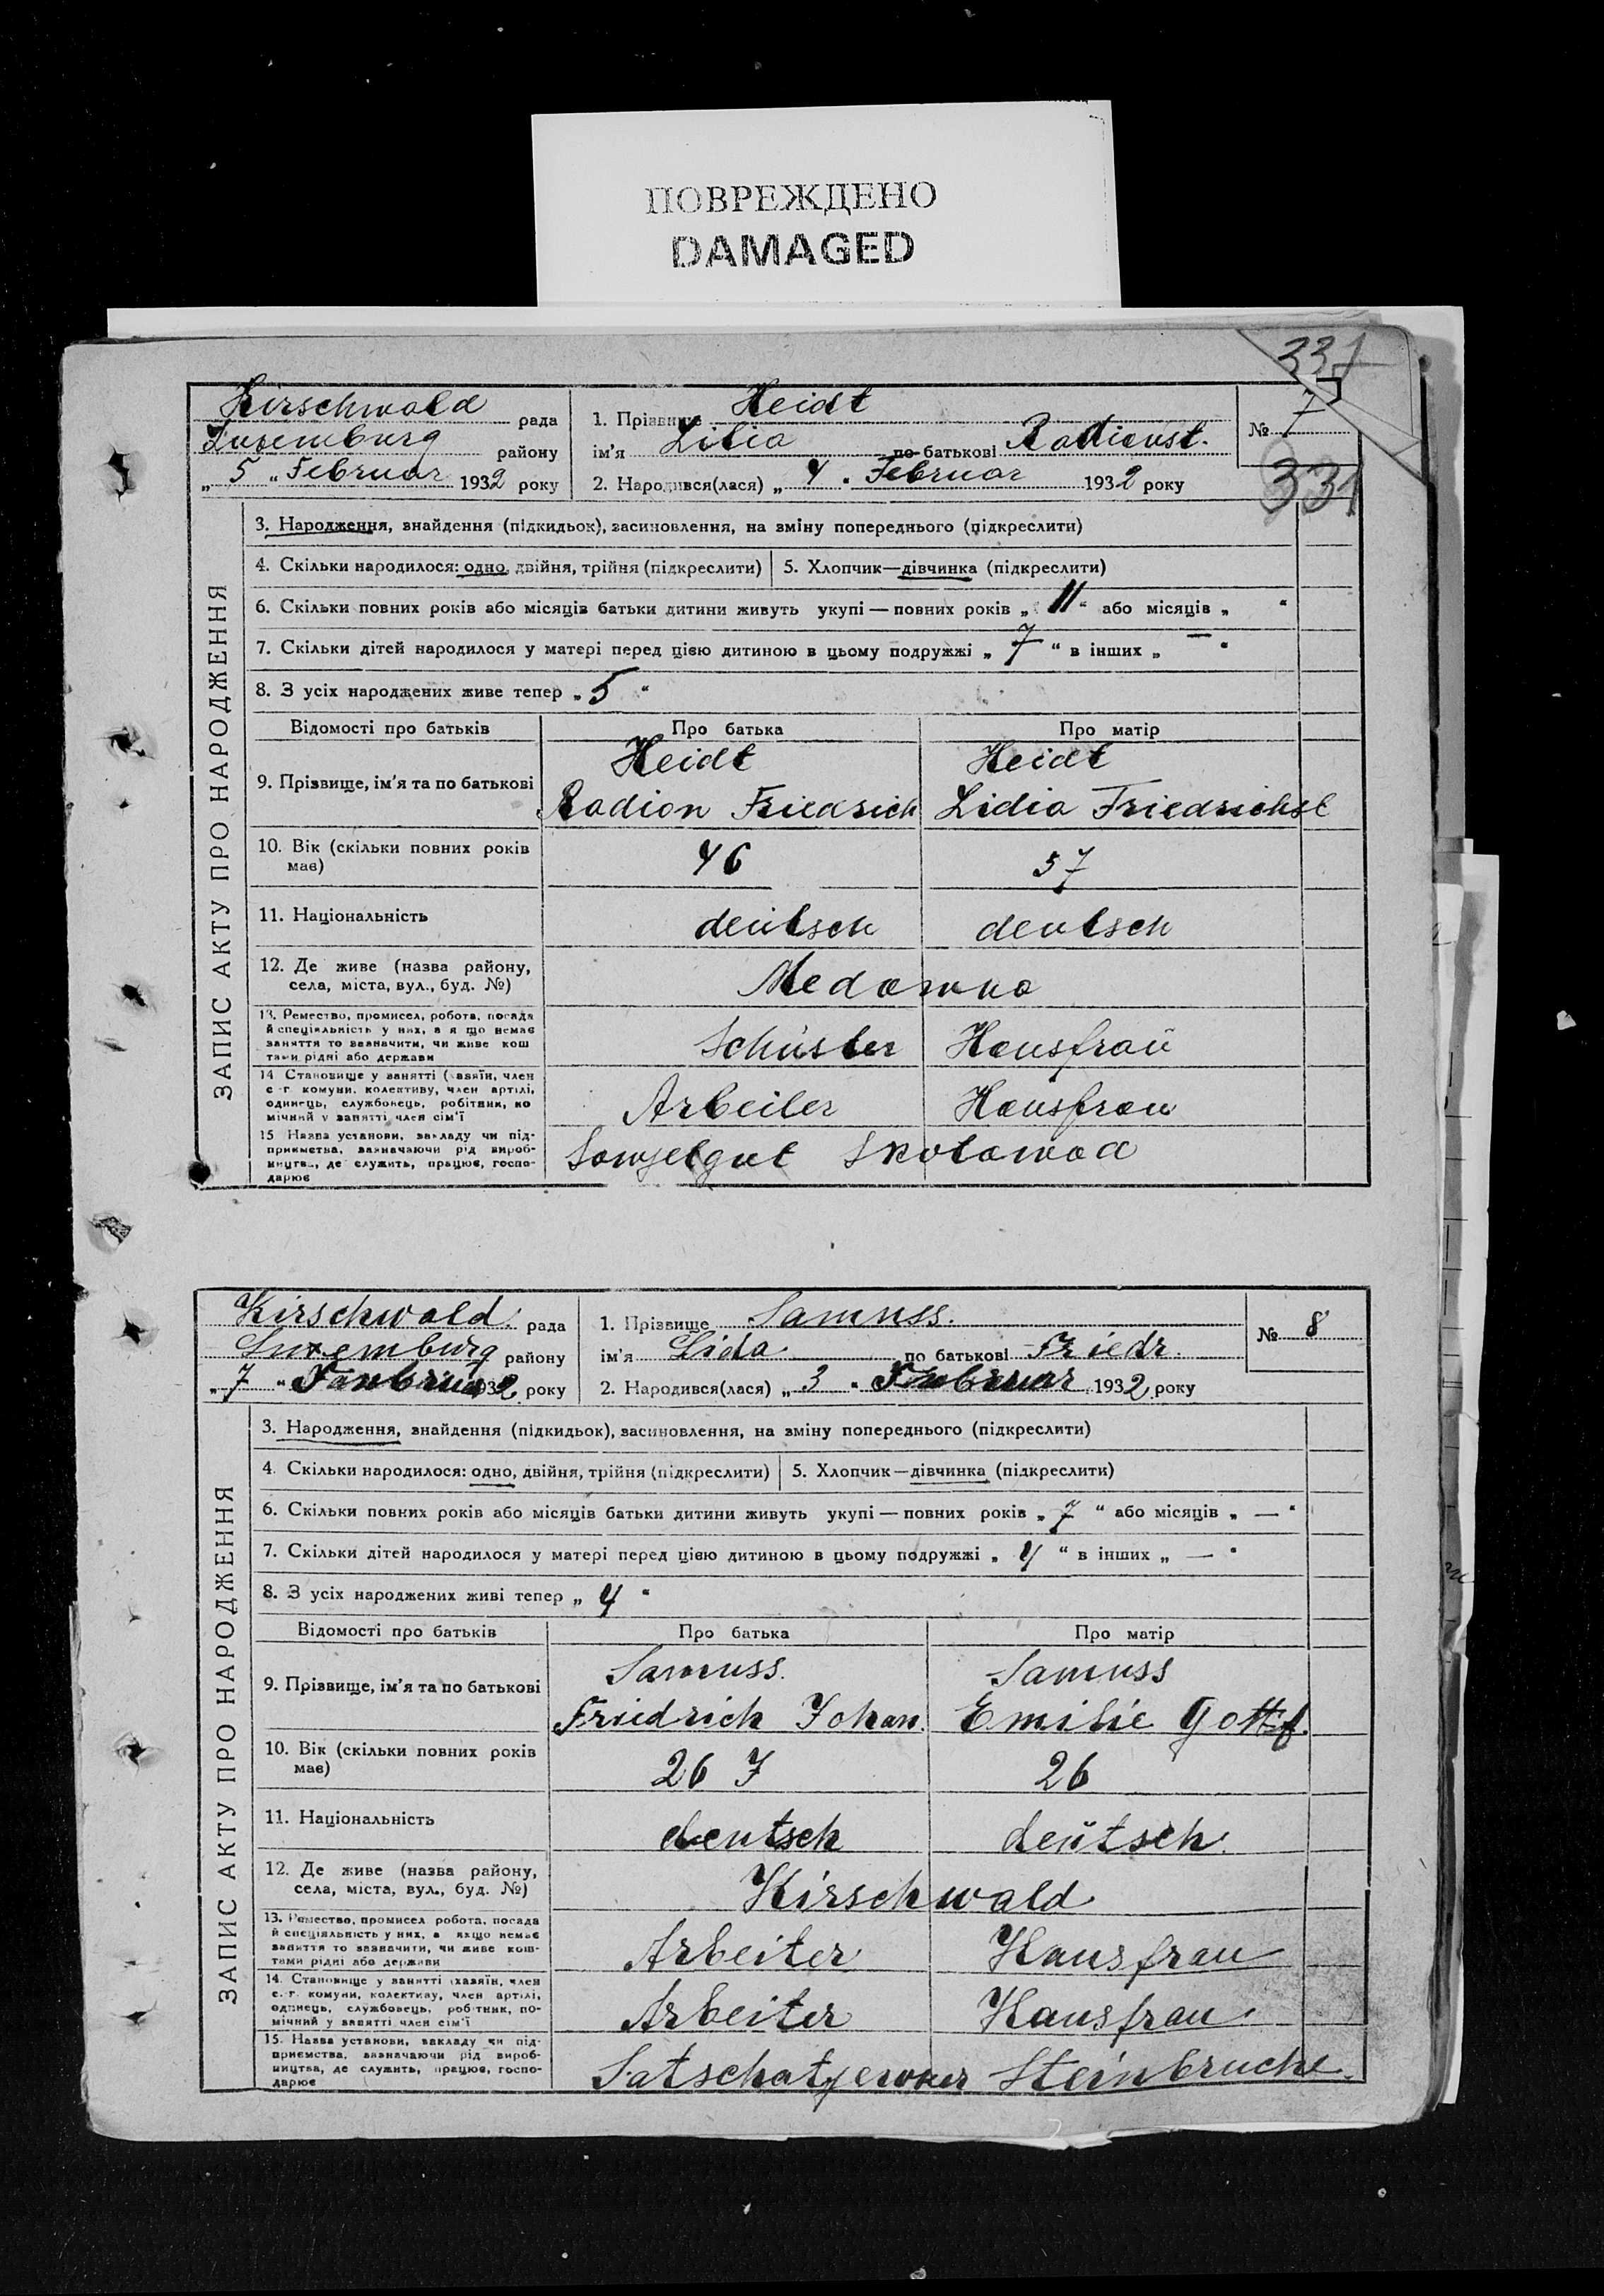 ПОВРЕЖДЕНО
DAMAGED
331
Kirschwald рада
Luxemburg району
„ 5 “ Februar 1932 року
1. Прізвище Heidt
ім'я Lilia по батькові
2. Народився(лася) „ 4 “ Februar 1932 року
№ 7
331
ЗАПИС АКТУ ПРО НАРОДЖЕННЯ
3. Народження, знайдення (підкидьок), засиновлення, на зміну попереднього (підкреслити)
4. Скільки народилося: одно, двійня, трійня (підкреслити) 5. Хлопчик—дівчинка (підкреслити)
6. Скільки повних років або місяців батьки дитини живуть укупі — повних років „ 11 “ або місяців „ “
7. Скільки дітей народилося у матері перед цією дитиною в цьому подружжі „ 7 “ в інших „ — “
8. З усіх народжених живе тепер „ 5 “
Відомості про батьків Про батька Про матір
9. Прізвище, ім'я та по батькові
Heidt Heidt
Radion Friedrich Lidia Friedrichst
10. Вік (скільки повних років
має)
46 37
11. Національність deutsch deutsch
12. Де живе (назва району,
села, міста, вул., буд. №)
13. Ремество, промисел, робота, посада
й спеціяльність у них, а я що немає
заняття то зазначити, чи живе кош
тами рідні або держави
Schuster Hausfrau
14 Становище у занятті (хазяїн, член
с.-г. комуни, колективу, член артілі,
одинець, службовець, робітник, по
мічний у занятті член сім'ї
Arbeiter Hausfrau
15 Назва установи, закладу чи під-
приємства, зазначаючи рід вироб-
ництва, де служить, працює, госпо-
дарює
Sowjetgut
Kirschwald рада
Luxemburg району
„ 7 “ 1932 року
1. Прізвище Samuss.
ім'я Lida по батькові Friedr.
2. Народився(лася) „ 3 “ Februar 1932 року
№ 8
ЗАПИС АКТУ ПРО НАРОДЖЕННЯ
3. Народження, знайдення (підкидьок), засиновлення, на зміну попереднього (підкреслити)
4. Скільки народилося: одно, двійня, трійня (підкреслити) 5. Хлопчик—дівчинка (підкреслити)
6. Скільки повних років або місяців батьки дитини живуть укупі — повних років „ 7 “ або місяців „ — “
7. Скільки дітей народилося у матері перед цією дитиною в цьому подружжі „ 4 “ в інших „ — “
8. З усіх народжених живі тепер „ 4 “
Відомості про батьків Про батька Про матір
9. Прізвище, ім'я та по батькові
Samuss. Samuss
Friedrich Johan. Emilie Gottf.
10. Вік (скільки повних років
має)
26 J 26
11. Національність deutsch deutsch.
12. Де живе (назва району,
села, міста, вул., буд. №)
Kirschwald
13. Ремество, промисел робота, посада
й спеціяльність у них, а якщо немає
заняття то зазначити, чи живе кош-
тами рідні або держави
Arbeiter Hausfrau
14. Становище у занятті хазяїн, член
с.-г. комуни, колективу, член артілі,
одинець, службовець, робітник, по-
мічний у занятті член сім'ї
Arbeiter Hausfrau.
15. Назва установи, закладу чи під-
приємства, зазначаючи рід вироб-
ництва, де служить, працює, госпо-
дарює
Steinbruche.